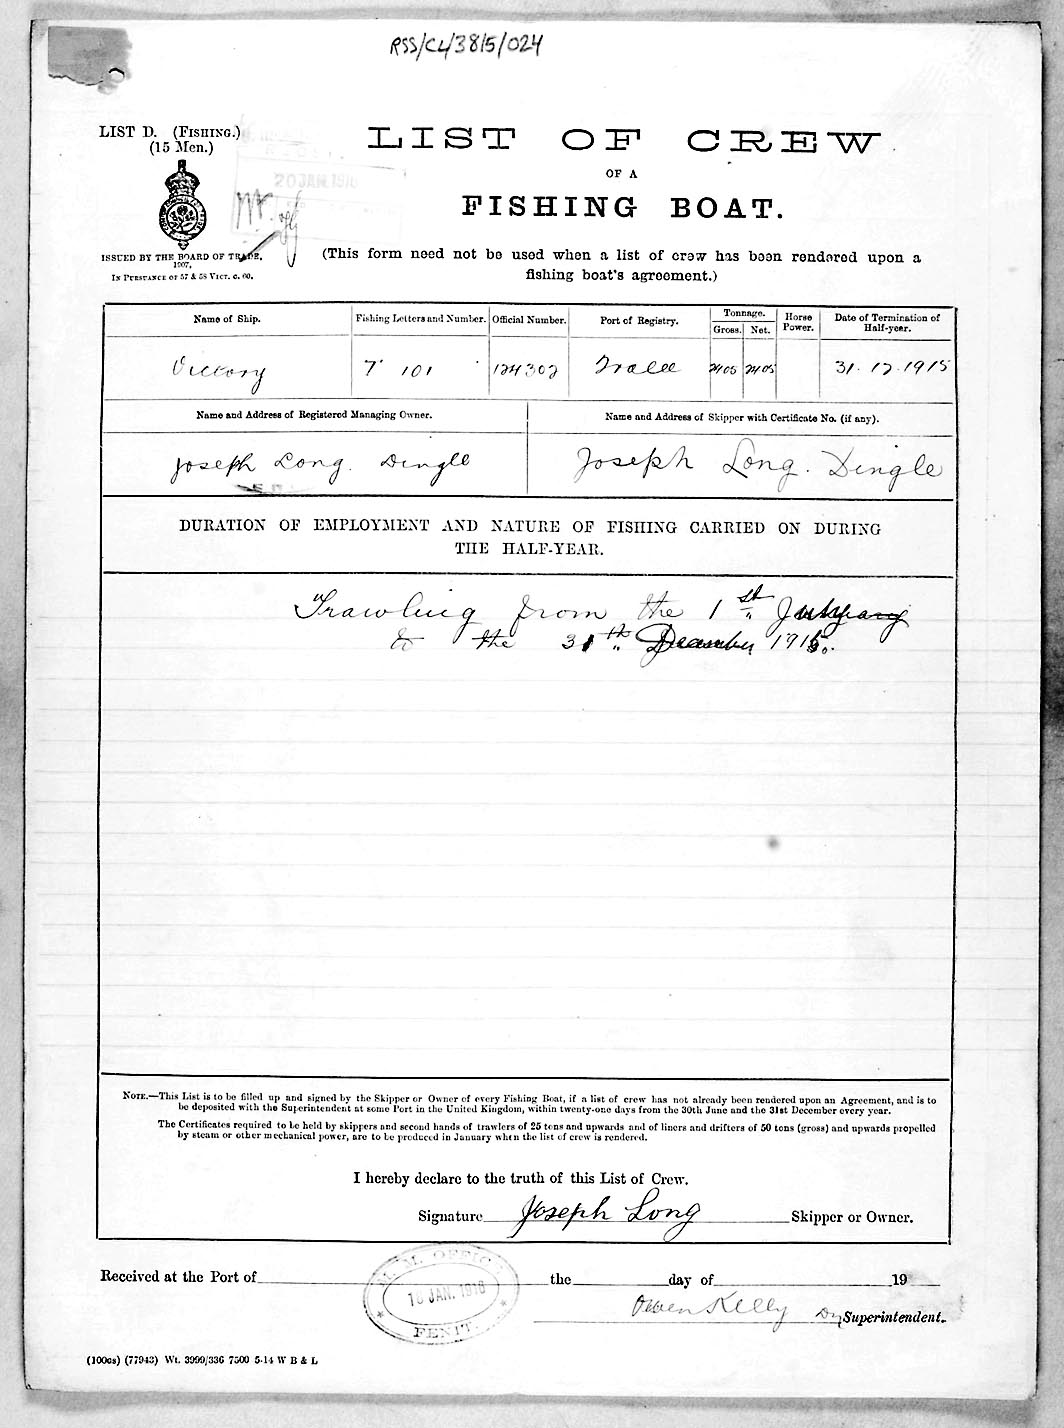 RSS/CL/3815/024
LIST D. (FISHING.)
(15 Men.)
20 JAN. 1916
ISSUED BY THE BOARD OF TRADE,
1907,
IN PURSUANCE OF 57 & 58 VICT. C. 60.
LIST OF CREW
OF A
FISHING BOAT.
(This form need not be used when a list of crew has been rendered upon a
fishing boat's agreement.)
Name of Ship. Fishing Letters and Number. Official Number. Port of Registry. Tonnage. Gross. Net. Horse Power. Date of Termination of Half-year.
Victory T 101 124302 Tralee 24.05 24.05 31.12.1915
Name and Address of Registered Managing Owner. Name and Address of Skipper with Certificate No. (if any).
Joseph Long. Dingle Joseph Long. Dingle
DURATION OF EMPLOYMENT AND NATURE OF FISHING CARRIED ON DURING
THE HALF-YEAR.
Trawling from the 1st July
to the 31th December 1915.
NOTE.—This List is to be filled up and signed by the Skipper or Owner of every Fishing Boat, if a list of crew has not already been rendered upon an Agreement, and is to
be deposited with the Superintendent at some Port in the United Kingdom, within twenty-one days from the 30th June and the 31st December every year.
The Certificates required to be held by skippers and second hands of trawlers of 25 tons and upwards and of liners and drifters of 50 tons (gross) and upwards propelled
by steam or other mechanical power, are to be produced in January when the list of crew is rendered.
I hereby declare to the truth of this List of Crew.
Signature Joseph Long Skipper or Owner.
M. M. OFFICE
JAN. 1916
FENIT.
Received at the Port of the day of 19
Owen Kelly Dy Superintendent.
(100cs) (77943) Wt. 3999/336 7500 5-14 W B & L